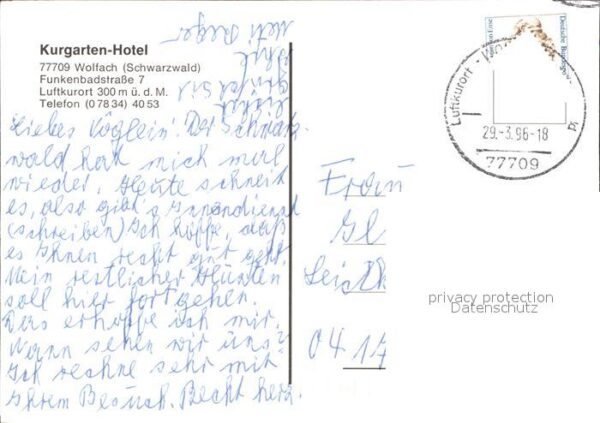 Kurgarten-Hotel
77709 Wolfach (Schwarzwald)
Funkenbadstraße 7
Luftkurort 300 m ü. d. M.
Telefon (0 78 34) 40 53
Liebes Vöglein! Der Schwarz-
wald hat mich mal
wieder. Heute schneit
es, also gibt's Innendienst
(schreiben) Ich hoffe, daß
es Ihnen recht gut geht.
Mein restlicher Husten
soll hier fortgehen.
Das erhoffe ich mir.
Wann sehen wir uns?
Ich rechne sehr mit
Ihrem Besuch. Recht herz-
Deutsche Bundespost
Luftkurort
29.-3.96-18
77709
Frau
Gl
Leich
0417
privacy protection
Datenschutz